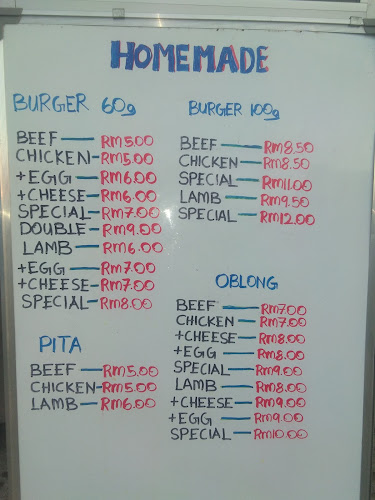 HOMEMADE
BURGER 60g
BEEF — RM5.00
CHICKEN - RM5.00
+EGG — RM6.00
+CHEESE - RM6.00
SPECIAL - RM7.00
DOUBLE - RM9.00
LAMB — RM6.00
+EGG — RM7.00
+CHEESE - RM7.00
SPECIAL - RM8.00
PITA
BEEF — RM5.00
CHICKEN - RM5.00
LAMB — RM6.00
BURGER 100g
BEEF — RM8.50
CHICKEN — RM8.50
SPECIAL — RM11.00
LAMB — RM9.50
SPECIAL — RM12.00
OBLONG
BEEF — RM7.00
CHICKEN — RM7.00
+CHEESE — RM8.00
+EGG — RM8.00
SPECIAL — RM9.00
LAMB — RM8.00
+CHEESE — RM9.00
+EGG — RM9.00
SPECIAL — RM10.00